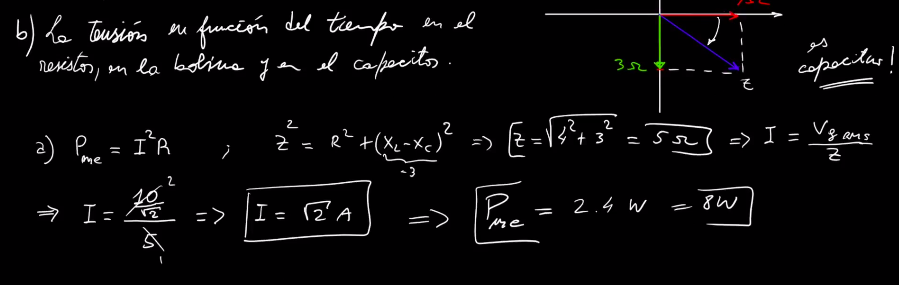 b) La tensión en función del tiempo en el
resistor, en la bobina y en el capacitor.
3Ω
Z
es
capacitivo!
a) Pme = I²R ; Z² = R² + (XL-XC)² => Z = √4²+3² = 5Ω => I = Vg rms / Z
-3
=> I = 10/√2 / 5 => I = √2 A => Pme = 2.4 W = 8W
2
1